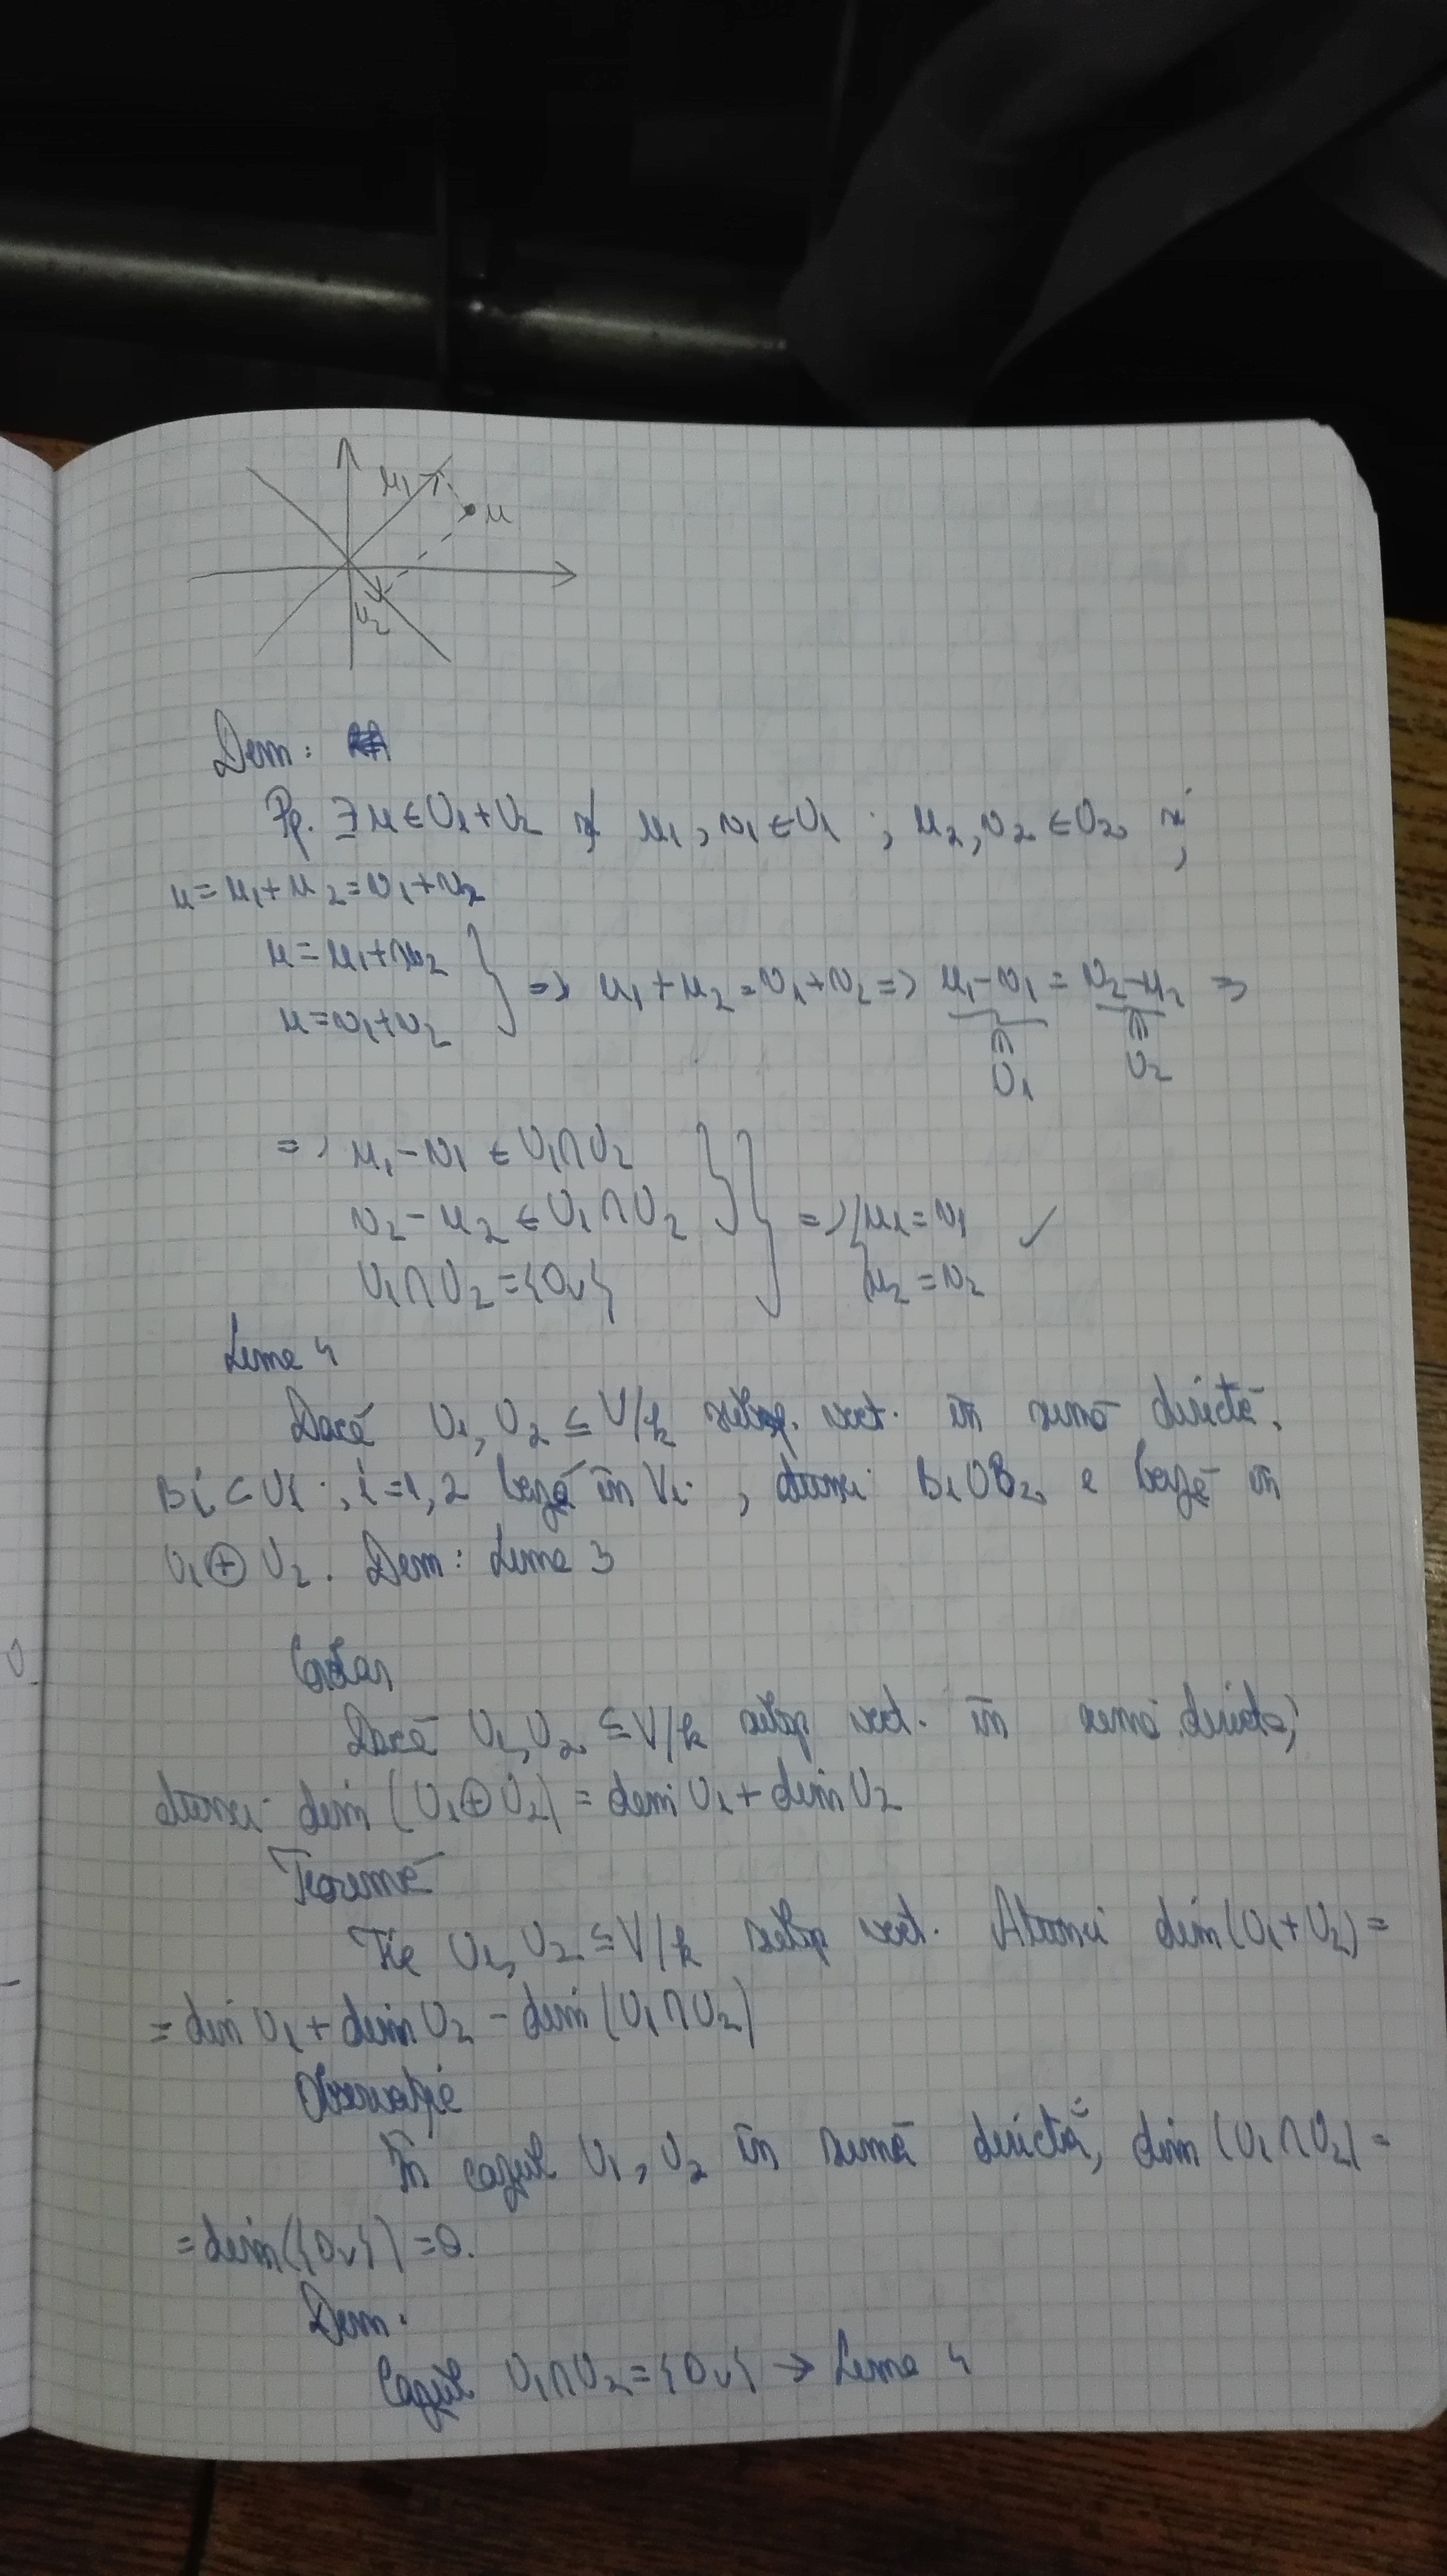 u₁
u
u₂
Dem:
Pp. ∃ u ∈ U₁+U₂ și u₁, v₁ ∈ U₁ ; u₂, v₂ ∈ U₂ aî
u = u₁+u₂ = v₁+v₂
u = u₁+u₂
u = v₁+v₂ } => u₁+u₂ = v₁+v₂ => u₁-v₁ = v₂-u₂ =>
∈ U₁ ∈ U₂
=> u₁-v₁ ∈ U₁∩U₂
v₂-u₂ ∈ U₁∩U₂ } => { u₁ = v₁ ✓
U₁∩U₂ = {0ᵥ} u₂ = v₂
Lema 4
Dacă U₁, U₂ ⊆ V/k subsp. vect. în sumă directă.
Bi ⊂ Ui ; i=1,2 bază în Vi , atunci B₁∪B₂ e bază în
U₁⊕U₂. Dem: Lema 3
Corolar
Dacă U₁, U₂ ⊆ V/k subsp vect. în sumă directă,
atunci dim (U₁⊕U₂) = dim U₁ + dim U₂
Teoremă
Fie U₁, U₂ ⊆ V/k subsp vect. Atunci dim (U₁+U₂) =
= dim U₁ + dim U₂ - dim (U₁∩U₂)
Observație
În cazul U₁, U₂ în sumă directă, dim (U₁∩U₂) =
= dim({0ᵥ}) = 0.
Dem.
Cazul U₁∩U₂ = {0ᵥ} → Lema 4